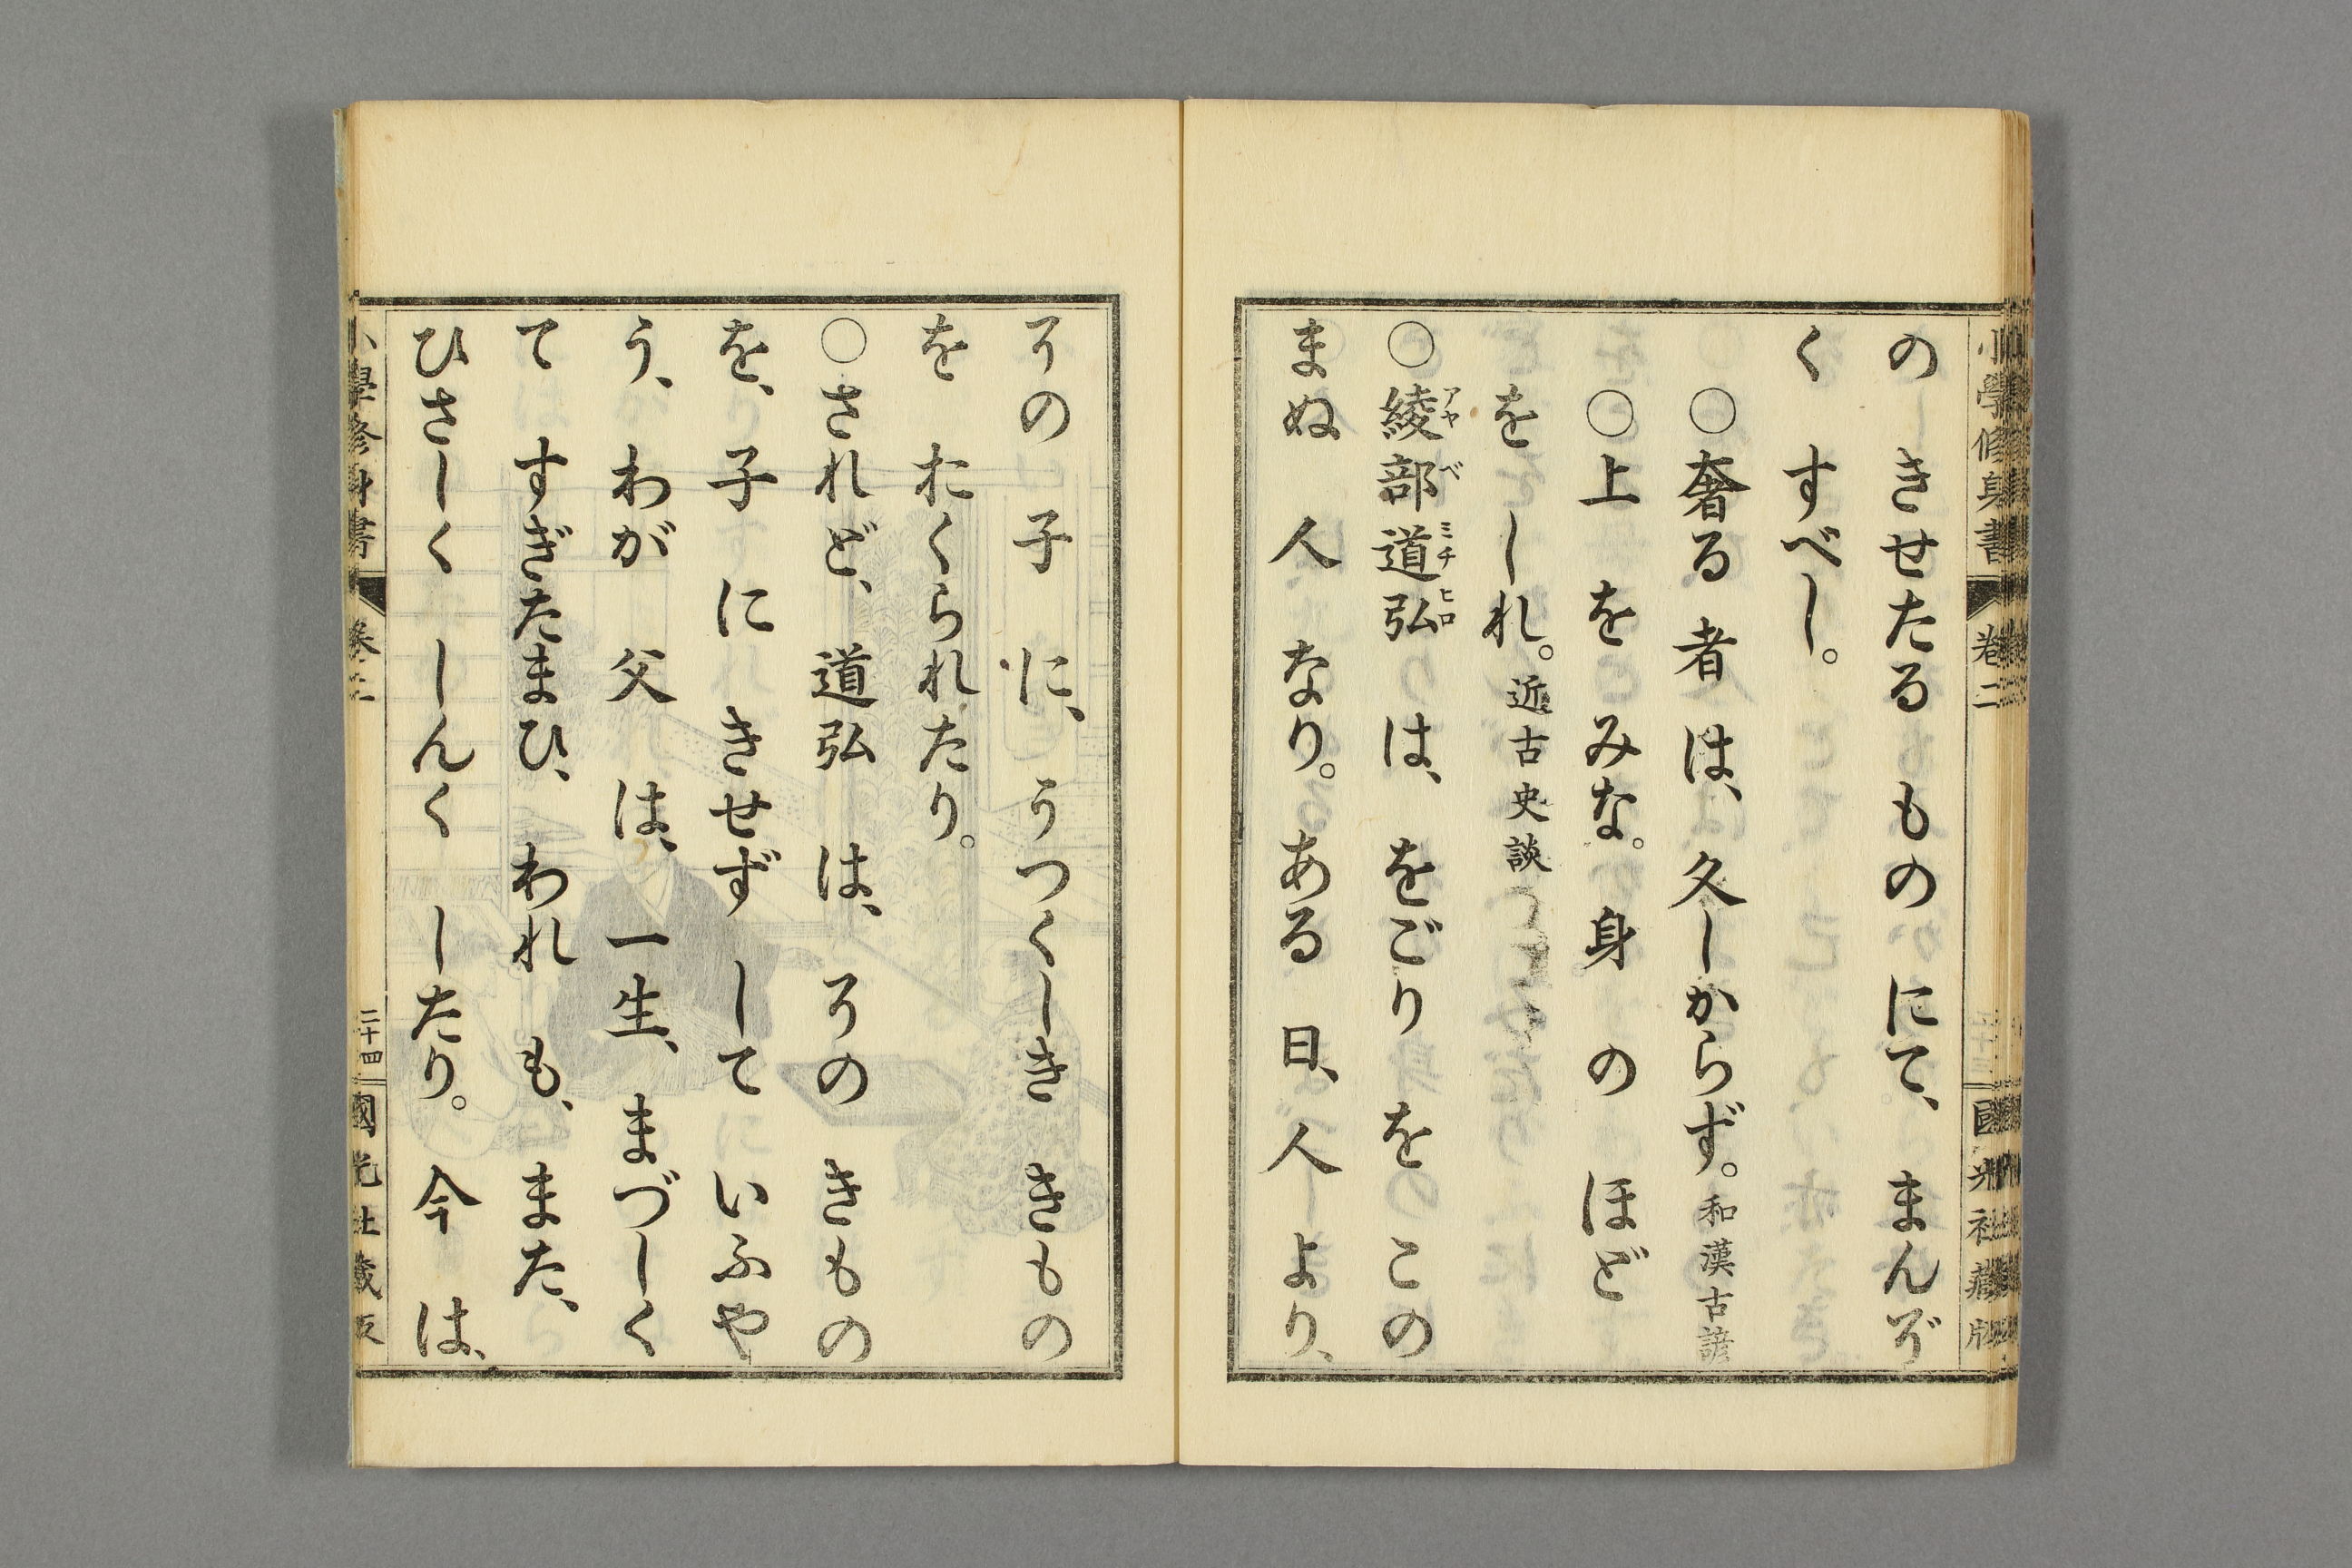 小學修身書 卷二 國光社藏版
の きせたる もの にて、 まんぞ
く すべし。
○奢る 者 は、 久しからず。和漢古諺
○上 を みな。 身 の ほど
を しれ。近古史談
○綾部道弘 は、 をごり を この
アヤ ベ ミチ ヒロ
まぬ 人 なり。 ある 日、 人 より、
その 子 に、 うつくしき きもの
を たくられたり。
○されど、 道弘 は、 その きもの
を、 子 に きせず して いふや
う、 わが 父 は、 一生、 まづしく
て すぎたまひ、 われ も、 また、
ひさしく しんく したり。 今 は、
小學修身書 卷二 二十四 國光社藏版